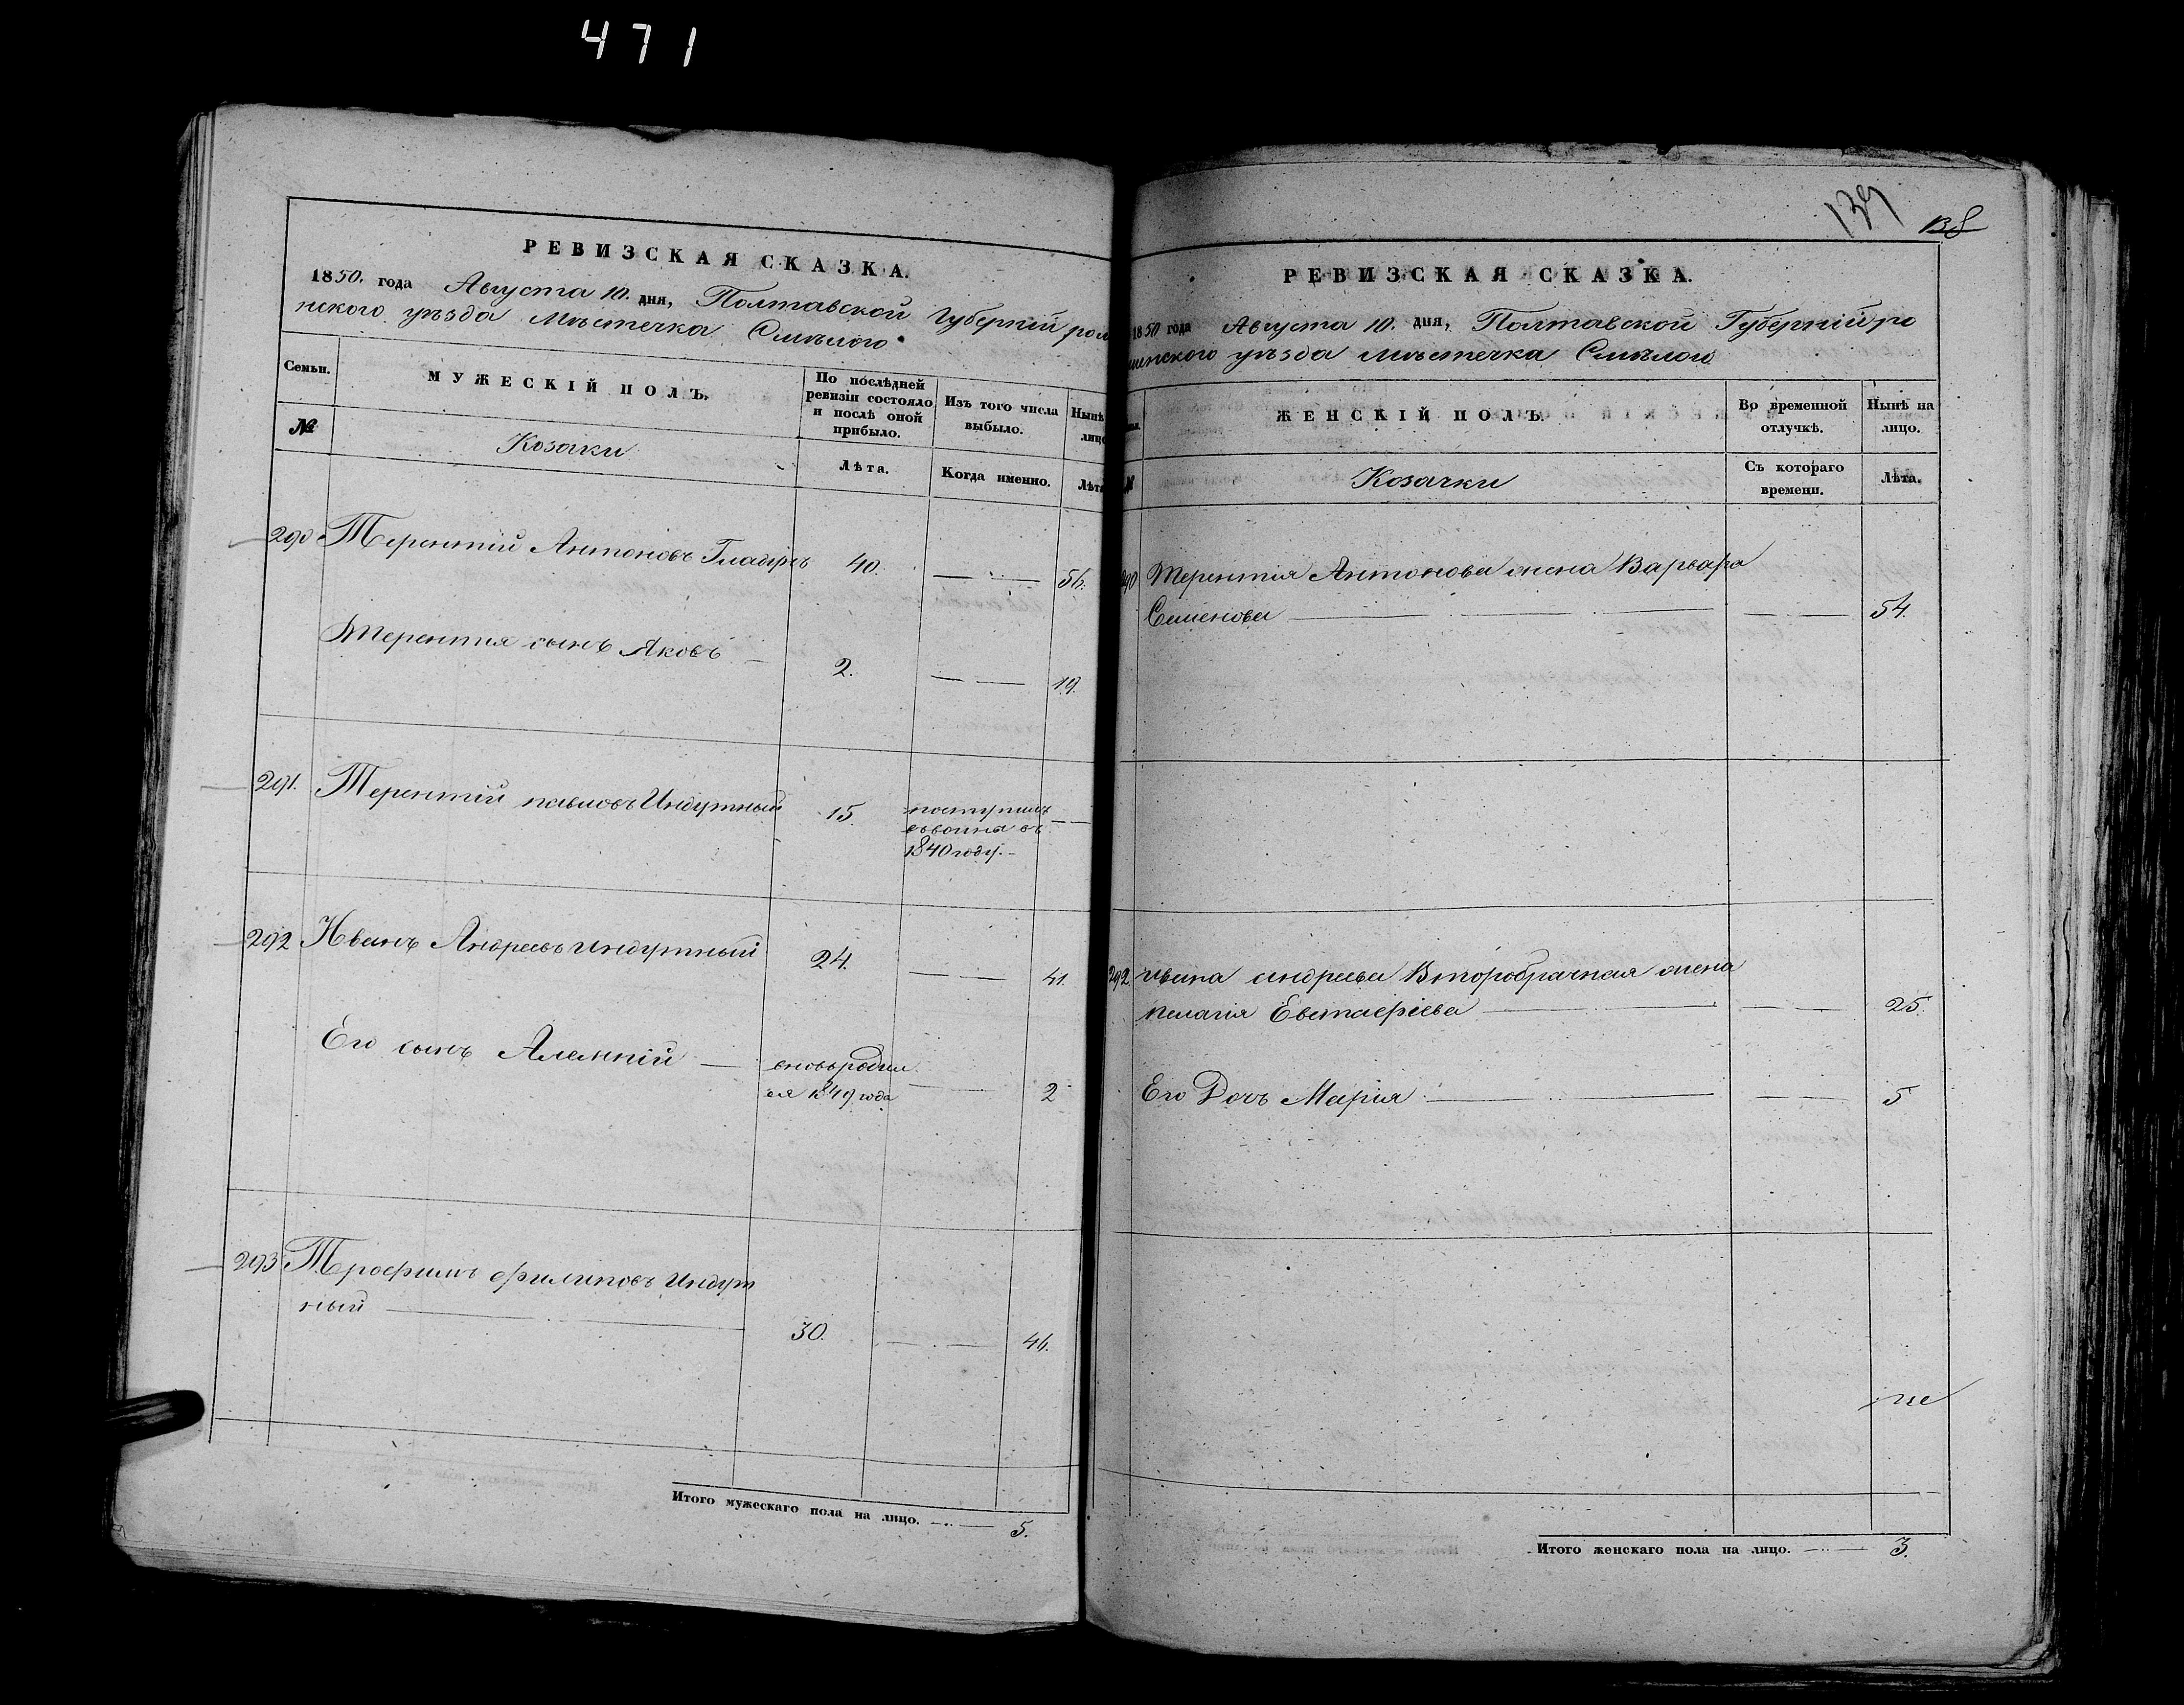 471
РЕВИЗСКАЯ СКАЗКА.
1850. года Августа 10. дня, Полтавской Губерніи ром
нского уѣзда Мѣстечка Смѣлого
Семьи.
МУЖЕСКІЙ ПОЛЪ.
По послѣдней ревизіи состояло и послѣ оной прибыло.
Изъ того числа выбыло.
Нынѣ лицо
№
Козаки
Лѣта.
Когда именно.
Лѣта
290 Терентій Антоновъ Гладиръ 40. 56.
Терентия сынъ Яковъ 2. 19.
291. Терентій павловъ Индутный 15. поступилъ
1840 году.
292 Иванъ Андреевъ индутный 24. 41.
Его сынъ Алекпій вновьродил
ся 1849 года 2
293 Трофимъ филиповъ Индут
ный 30. 46.
Итого мужескаго пола на лицо. 5.
139 138
РЕВИЗСКАЯ СКАЗКА.
1850 года Августа 10. дня, Полтавской Губерніи ро
менского уѣзда мѣстечка Смѣлого
ЖЕНСКІЙ ПОЛЪ.
Во временной отлучкѣ.
Нынѣ на лицо.
№
Козачки
Съ котораго времени.
Лѣта.
290 Терентія Антонова жена Варвара
Семенова 54.
292 ивана андреева Второбрачная жена
пелагія Евстафіева 25.
Его Дочь Мария 5
Итого женскаго пола на лицо. 3.